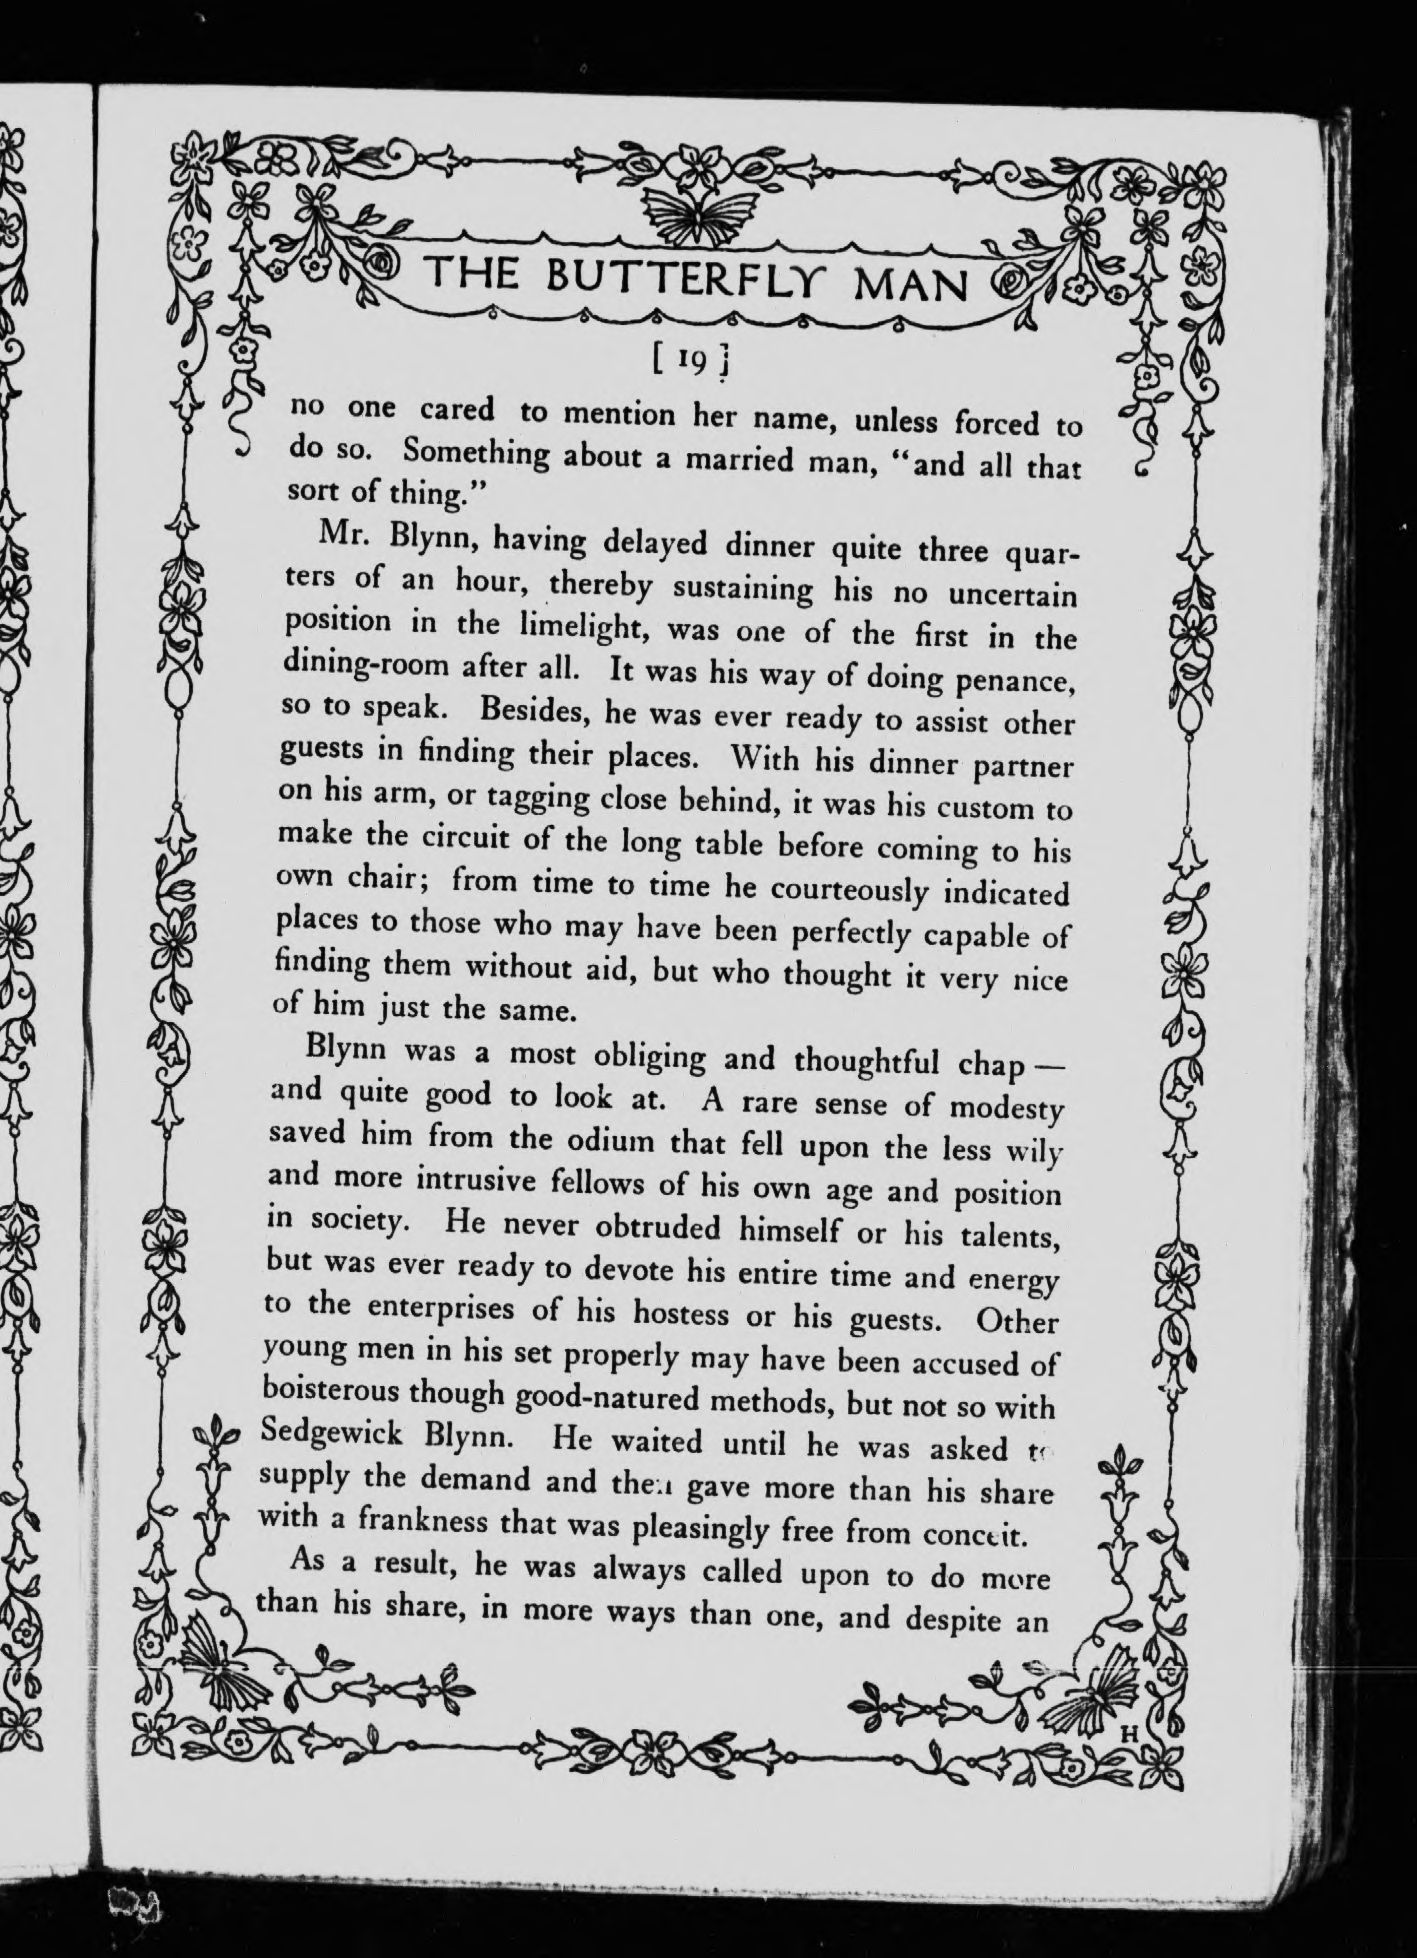 THE BUTTERFLY MAN
[ 19 ]
no one cared to mention her name, unless forced to
do so. Something about a married man, “and all that
sort of thing.”
Mr. Blynn, having delayed dinner quite three quar-
ters of an hour, thereby sustaining his no uncertain
position in the limelight, was one of the first in the
dining-room after all. It was his way of doing penance,
so to speak. Besides, he was ever ready to assist other
guests in finding their places. With his dinner partner
on his arm, or tagging close behind, it was his custom to
make the circuit of the long table before coming to his
own chair; from time to time he courteously indicated
places to those who may have been perfectly capable of
finding them without aid, but who thought it very nice
of him just the same.
Blynn was a most obliging and thoughtful chap —
and quite good to look at. A rare sense of modesty
saved him from the odium that fell upon the less wily
and more intrusive fellows of his own age and position
in society. He never obtruded himself or his talents,
but was ever ready to devote his entire time and energy
to the enterprises of his hostess or his guests. Other
young men in his set properly may have been accused of
boisterous though good-natured methods, but not so with
Sedgewick Blynn. He waited until he was asked to
supply the demand and then gave more than his share
with a frankness that was pleasingly free from conceit.
As a result, he was always called upon to do more
than his share, in more ways than one, and despite an
H